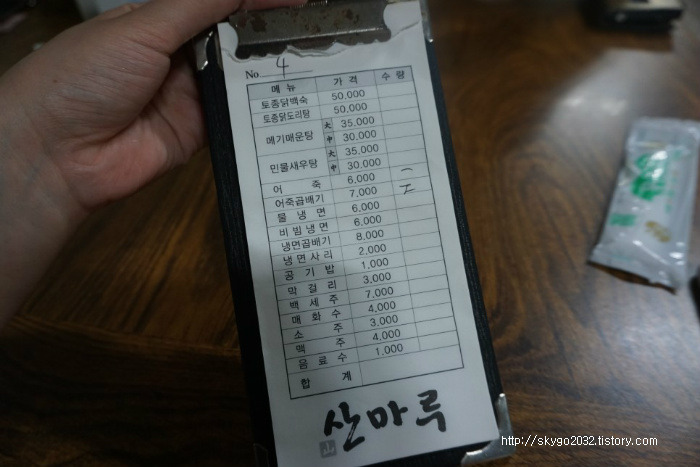 No 4
메뉴 가격 수량
토종닭백숙 50,000
토종닭도리탕 50,000
메기매운탕 大 35,000
中 30,000
민물새우탕 大 35,000
中 30,000
어죽 6,000
어죽곱배기 7,000
물냉면 6,000
비빔냉면 6,000
냉면곱배기 8,000
냉면사리 2,000
공기밥 1,000
막걸리 3,000
백세주 7,000
매화수 4,000
소주 3,000
맥주 4,000
음료수 1,000
합계
산마루
山
http://skygo2032.tistory.com